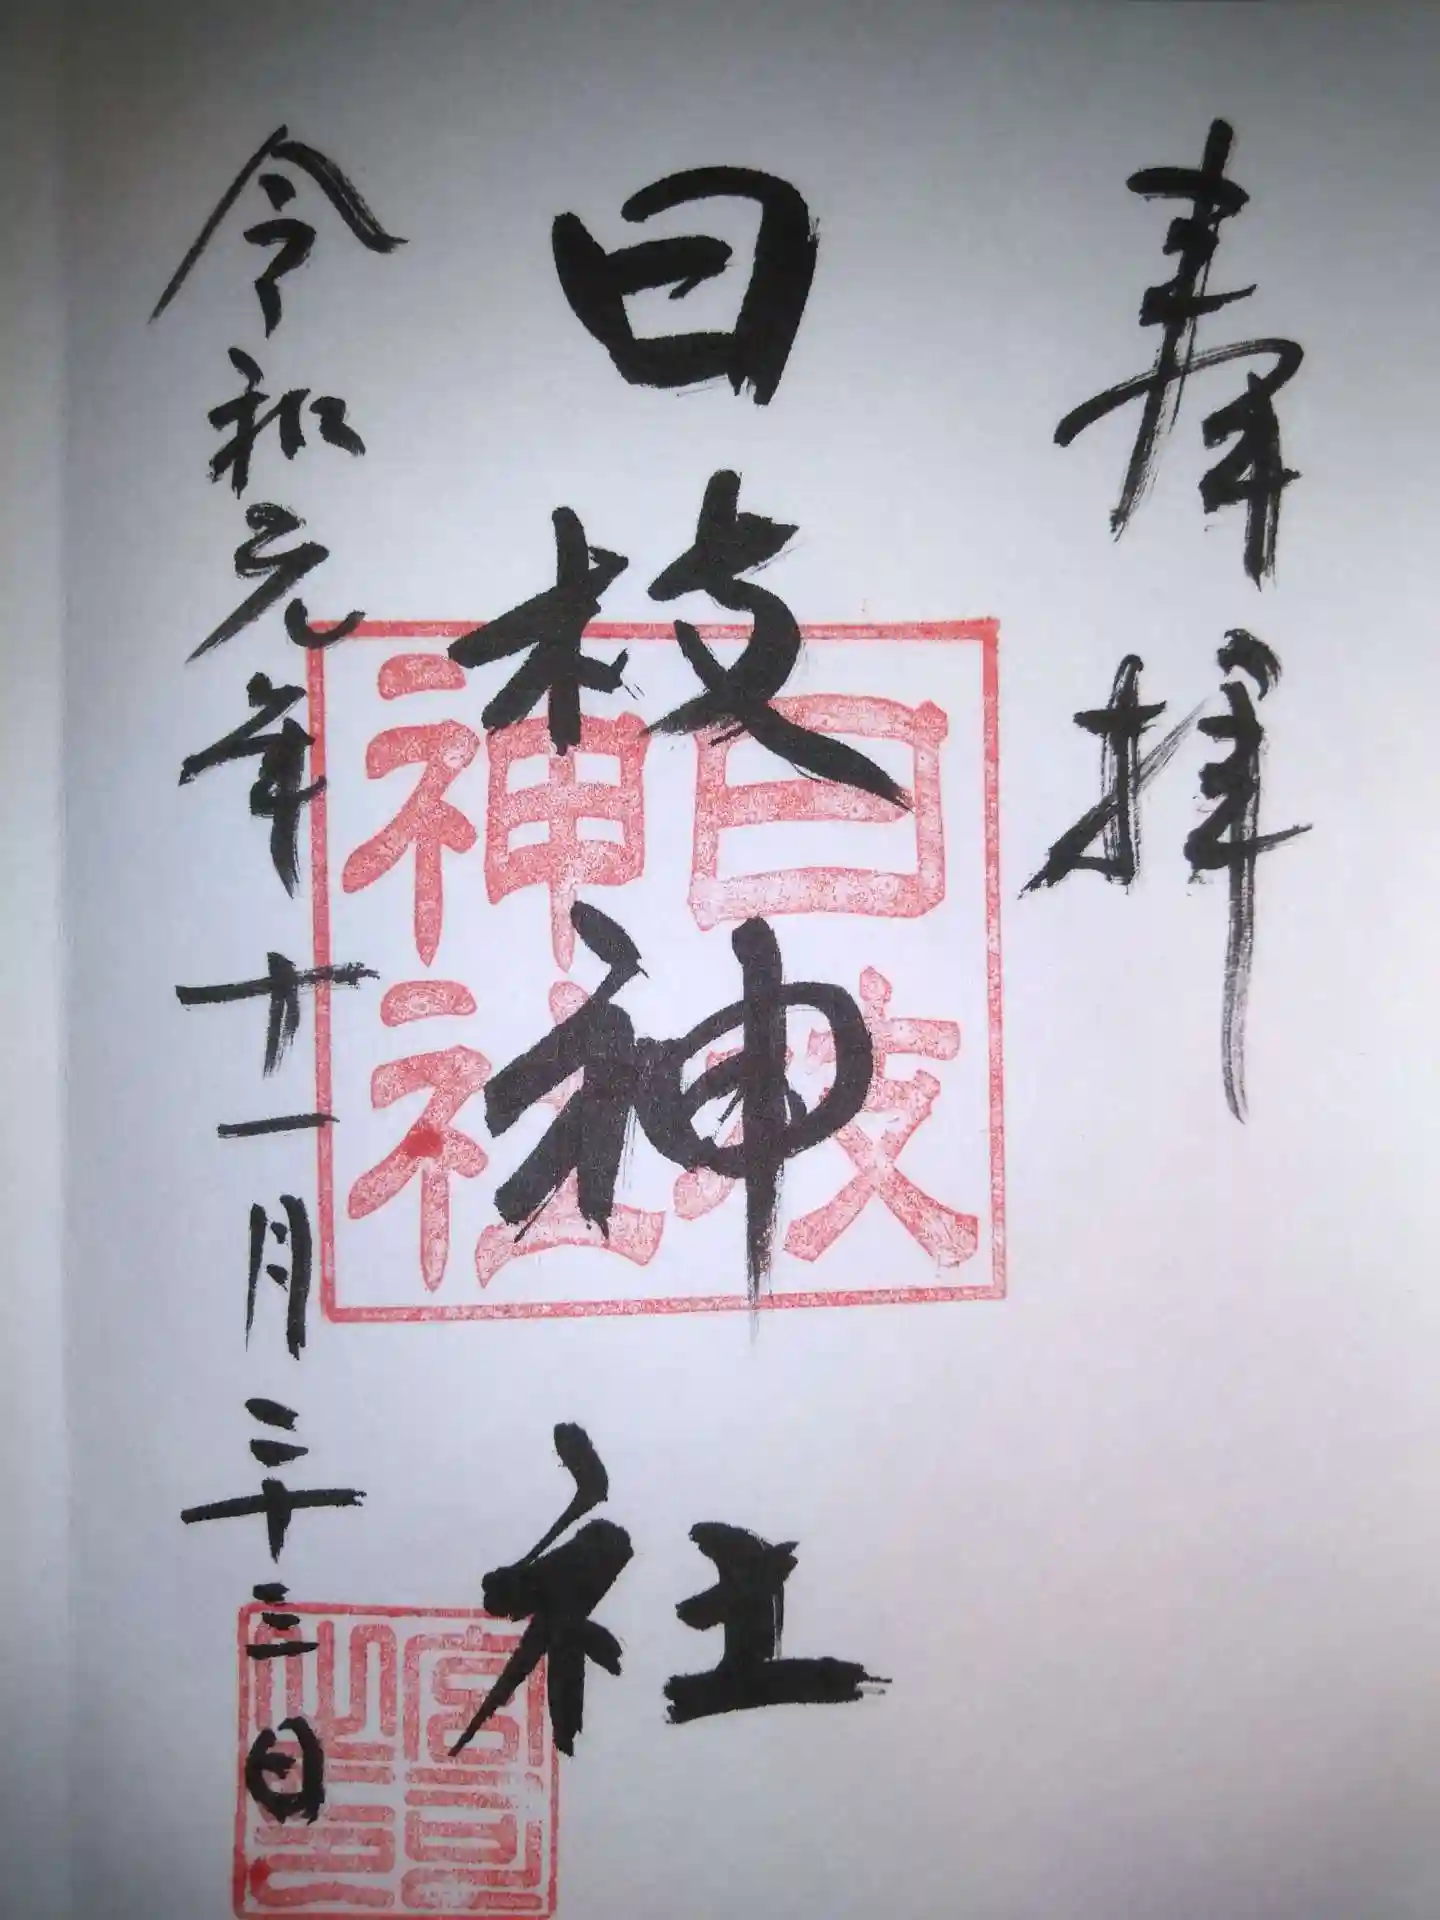 奉拝
日枝神社
令和元年十一月二十三日
日枝神社
宮司之印